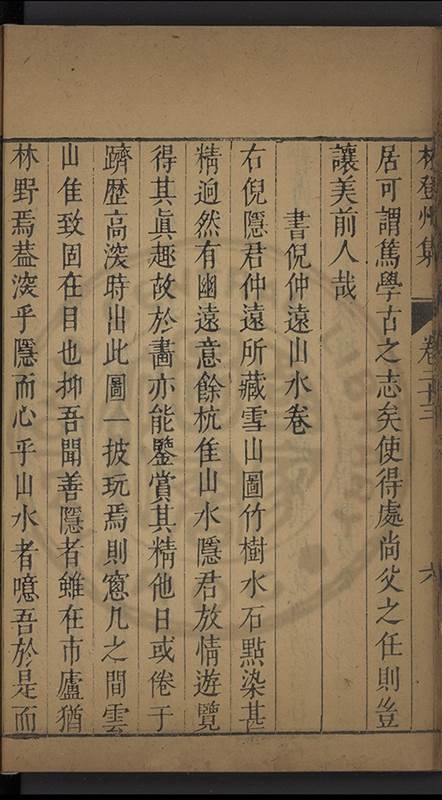 林登州集 卷二十三 六
居可謂篤學古之志矣使得處尚父之任則豈
讓美前人哉
書倪仲遠山水卷
右倪隱君仲遠所藏雪山圖竹樹水石點染甚
精逈然有幽遠意餘杭隹山水隱君放情遊覽
得其眞趣故於畵亦能鑒賞其精他日或倦于
躋歷高深時出此圖一披玩焉則窻几之間雲
山隹致固在目也抑吾聞善隱者雖在市廬猶
林野焉葢深乎隱而心乎山水者噫吾於是而